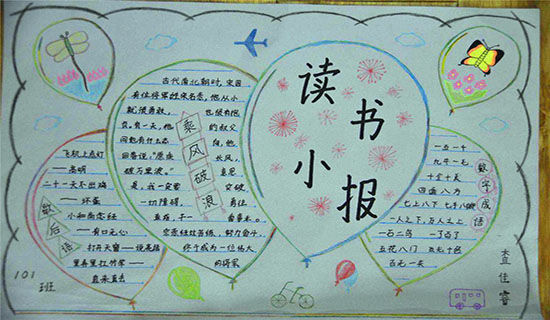 读书小报
古代南北朝时,宋国
有位将军姓宗名悫,他从小
就很勇敢, 也很有抱
负,有一天,他 的叔父
问他有什么志 向,他
回答说:"愿乘 长风,
破万里浪。" 意思
是,我一定要 突破
一切障碍, 勇往
直前,干一 番事业。
宗悫经过苦练,努力奋斗,
终于成为一位伟大
的将军
乘风破浪
飞机上点灯
——高明
二十一天不出鸡
——坏蛋
小和尚念经
——有口无心
打开天窗——说亮话
里弄里扛竹竿
——直来直去
歇后语
一五一十
九牛一毛
十全十美
四面八方
七上八下 七手八脚
一人之下,万人之上
一石二鸟 一了百了
五花八门 五光十色
百无一失
数字成语
101
班
查佳睿